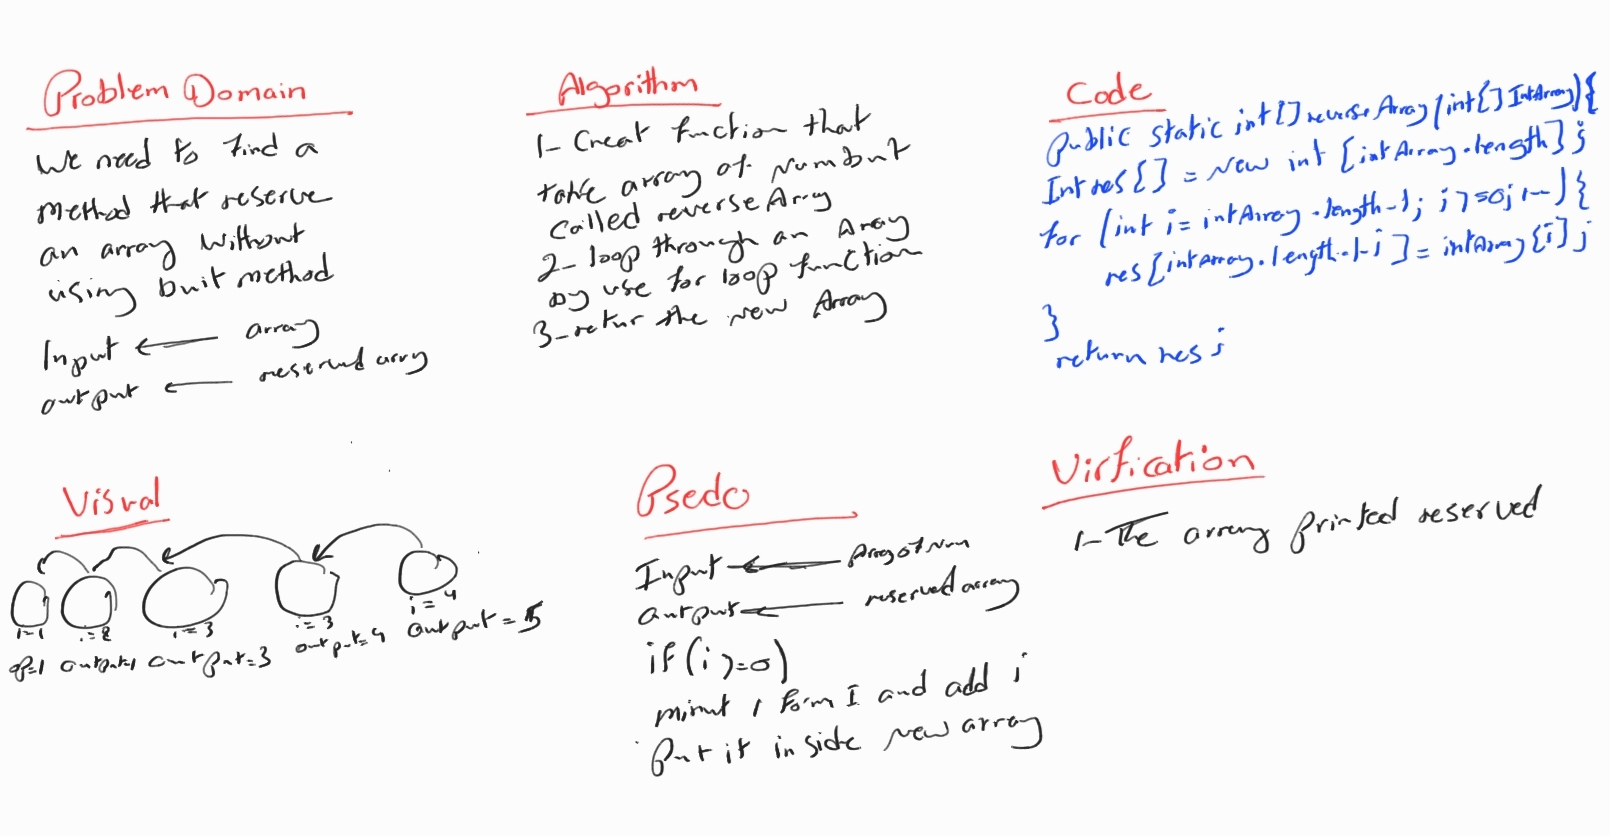 Problem Domain
We need to find a
method that reserve
an array without
using buit method
Input ← array
output ← reserved arry
Algorithm
1- Creat function that
take array of Numbut
called reverseArry
2- loop through an Array
by use for loop function
3- retur the new Array
Code
public static int[] reverseArray(int[] IntArray){
Int res[] = New int [intArray.length];
for (int i= intArray.length-1; i>=0; i--){
res[intArray.length-1-i] = intArray[i];
}
return res;
Visual
i=1 i=2 i=3 i=3 i=4
op=1 output=1 output=3 output=4 output=5
Psedo
Input ← Array of Num
output ← reserved array
if (i>=0)
minut 1 form I and add i
put it inside new array
Virfication
1- The array printed reserved